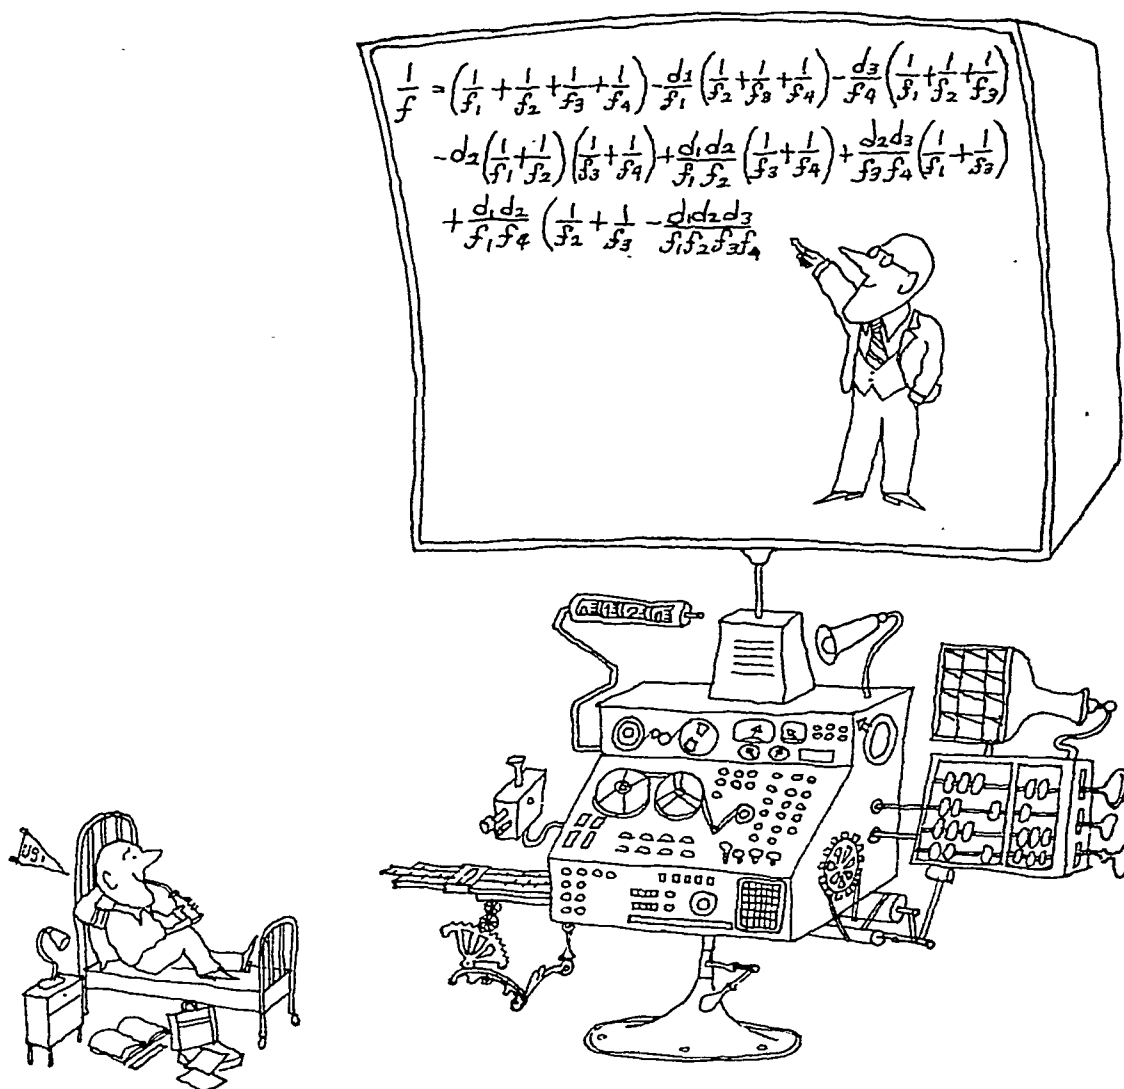 1/f = (1/f₁ + 1/f₂ + 1/f₃ + 1/f₄) - d₁/f₁ (1/f₂ + 1/f₃ + 1/f₄) - d₃/f₄ (1/f₁ + 1/f₂ + 1/f₃)
- d₂ (1/f₁ + 1/f₂) (1/f₃ + 1/f₄) + d₁d₂/f₁f₂ (1/f₃ + 1/f₄) + d₂d₃/f₃f₄ (1/f₁ + 1/f₃)
+ d₁d₂/f₁f₄ (1/f₂ + 1/f₃ - d₁d₂d₃/f₁f₂f₃f₄